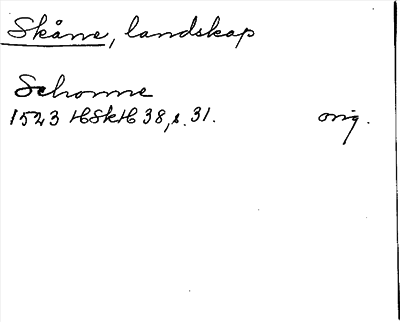 Skåne, landskap
Schonne
1523 HSkH 38, s. 31. orig.